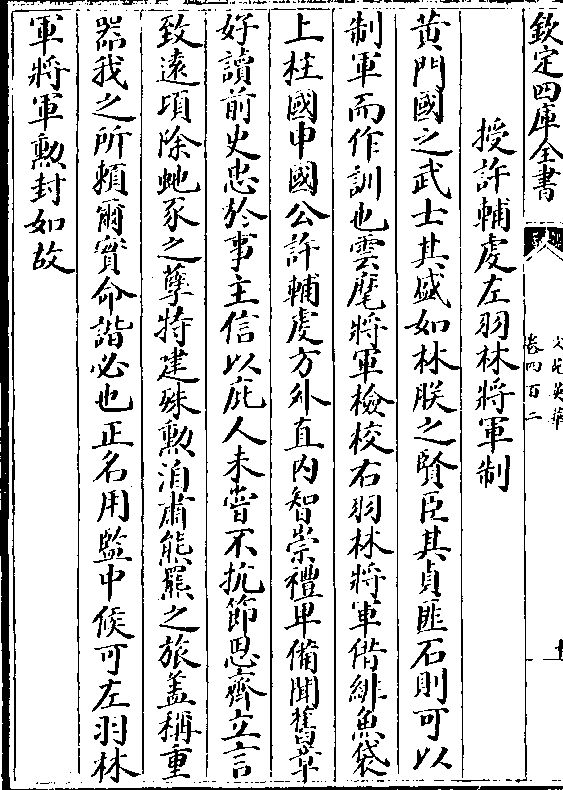 欽定四庫全書
文苑英華
卷四百二
授許輔䖍左羽林將軍制
黄門國之武士其盛如林朕之賢臣其貞匪石則可以
制軍而作訓也雲麾將軍檢校右羽林將軍借緋魚袋
上柱國申國公許輔䖍方外直内智崇禮卑備聞舊章
好讀前史忠於事主信以庇人未嘗不抗節思齊立言
致逺頃除虵豕之孽特建殊勲洎肅熊羆之旅盖稱重
器我之所賴爾實命諧必也正名用監中候可左羽林
軍將軍勲封如故